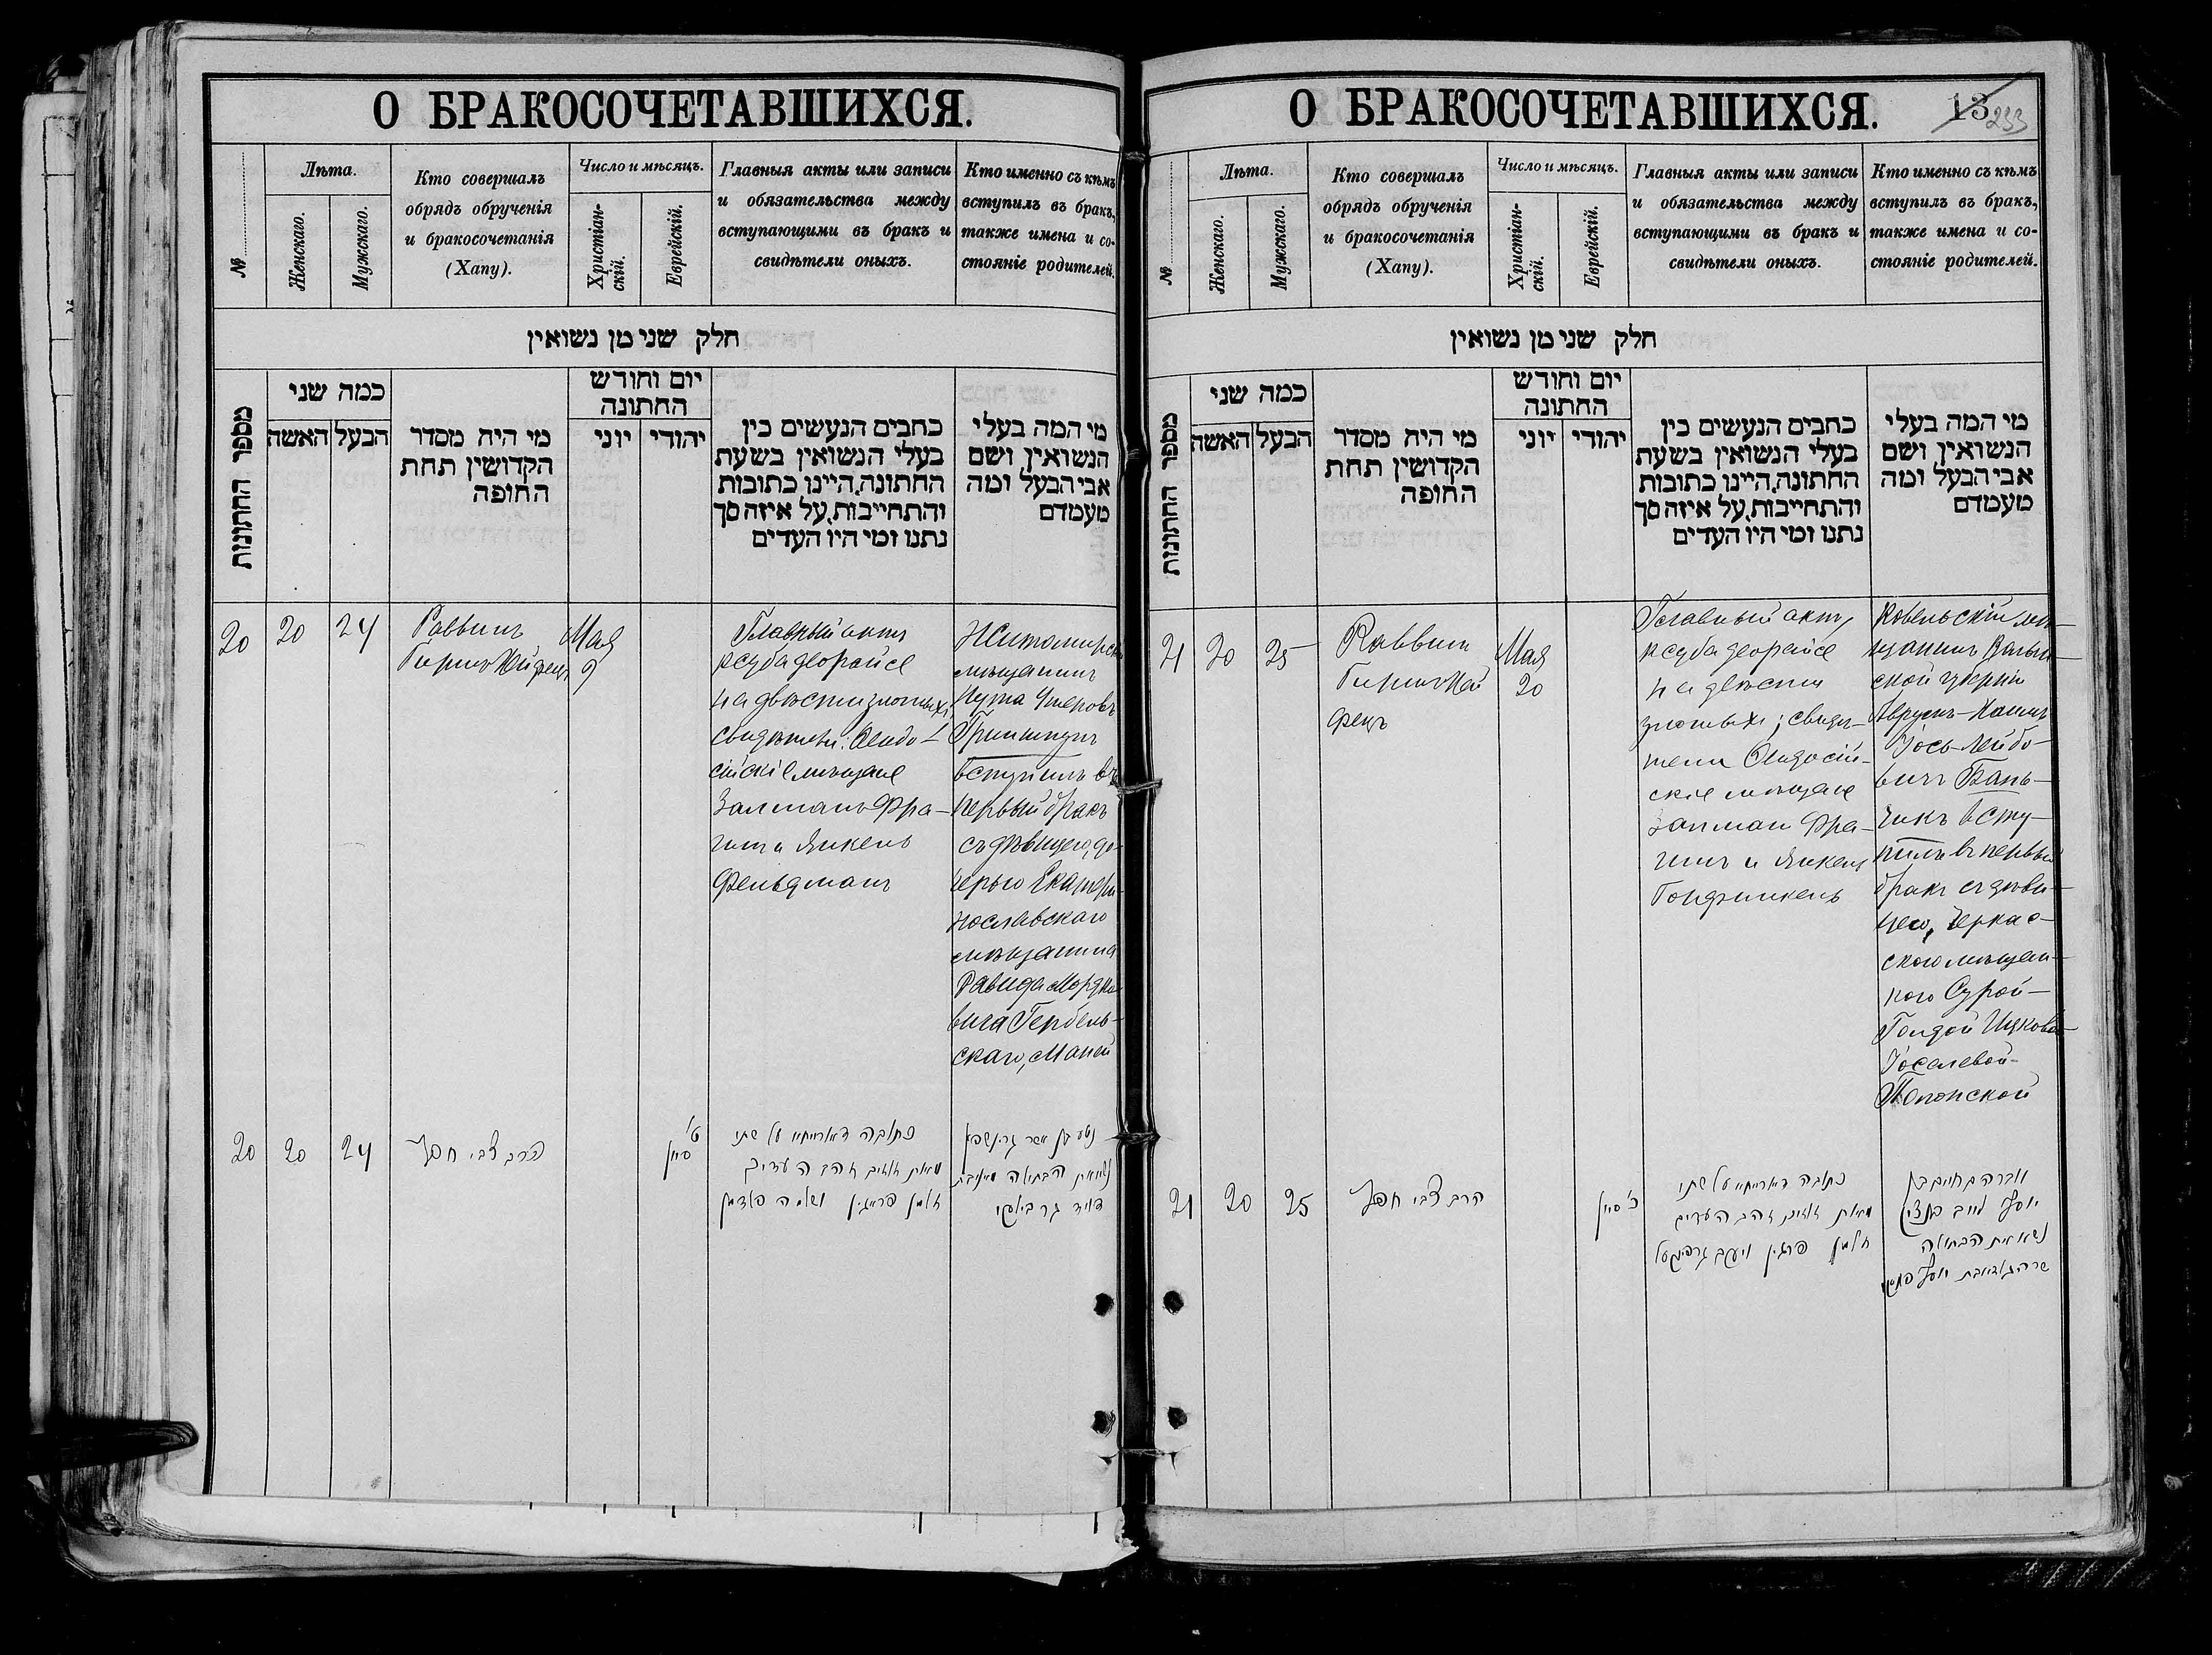 О БРАКОСОЧЕТАВШИХСЯ.
№
Лѣта.
Женскаго.
Мужскаго.
Кто совершалъ
обрядъ обрученія
и бракосочетанія
(Хапу).
Число и мѣсяцъ.
Христіан-
скій.
Еврейскій.
Главныя акты или записи
и обязательства между
вступающими въ бракъ и
свидѣтели оныхъ.
Кто именно съ кѣмъ
вступилъ въ бракъ,
также имена и со-
стояніе родителей.
חלק שני מן נשואין
מספר החתונות
כמה שני
הבעל
האשה
מי היה מסדר
הקדושין תחת
החופה
יום וחודש
החתונה
יהודי
יוני
כתבים הנעשים בין
בעלי הנשואין בשעת
החתונה, היינו כתובות
והתחייבות, על איזה סך
נתנו ומי היו העדים
מי המה בעלי
הנשואין ושם
אבי הבעל ומה
מעמדם
20
20
24
Раввинъ
Гиршъ Хейфецъ
Мая
9
Главный актъ
ксуба деорайсе
на двѣсти злотыхъ,
свидѣтели:
мѣщане
Залманъ Фра-
и Янкель
Фельдманъ
Житомирскій
мѣщанинъ
Гриншпунъ
вступилъ въ
первый бракъ
съ дѣвицею, до-
черью Екатери-
нославскаго
мѣщанина
Давида Мордко-
вича Гербель-
скаго, Маней
20
20
24
הרב צבי חפץ
ט'
סיון
כתובה דאורייתא על שתי
מאות זהובים העדים
זלמן פראגין
נשא את הבתולה
דוד
О БРАКОСОЧЕТАВШИХСЯ.
13
233
№
Лѣта.
Женскаго.
Мужскаго.
Кто совершалъ
обрядъ обрученія
и бракосочетанія
(Хапу).
Число и мѣсяцъ.
Христіан-
скій.
Еврейскій.
Главныя акты или записи
и обязательства между
вступающими въ бракъ и
свидѣтели оныхъ.
Кто именно съ кѣмъ
вступилъ въ бракъ,
также имена и со-
стояніе родителей.
חלק שני מן נשואין
מספר החתונות
כמה שני
הבעל
האשה
מי היה מסדר
הקדושין תחת
החופה
יום וחודש
החתונה
יהודי
יוני
כתבים הנעשים בין
בעלי הנשואין בשעת
החתונה, היינו כתובות
והתחייבות, על איזה סך
נתנו ומי היו העדים
מי המה בעלי
הנשואין ושם
אבי הבעל ומה
מעמדם
21
20
25
Раввинъ
Гиршъ Хей
фецъ
Мая
20
Главный актъ,
ксуба деорайсе
на двѣсти
злотыхъ; свидѣ-
тели
скіе мѣщане
Залман Фра-
и Янкель
Гонфинкель
Ковельскій мѣ-
щанинъ Волын-
ской губерніи
Аврумъ-Хаимъ
Іось-Лейбо-
вичъ Бань-
чикъ всту-
пилъ въ первый
бракъ съ дѣви-
цею, Черкас-
скою мѣщан-
кою Сурой-
Голдой Ицково-
Іоселевой-
21
20
25
הרב צבי חפץ
כ' סיון
כתובה דאורייתא על שתי
מאות זהובים העדים
זלמן פראגין ויעקב
אברהם חיים בן
יוסף לייב
נשא את הבתולה
שרה גאלדא בת יוסף